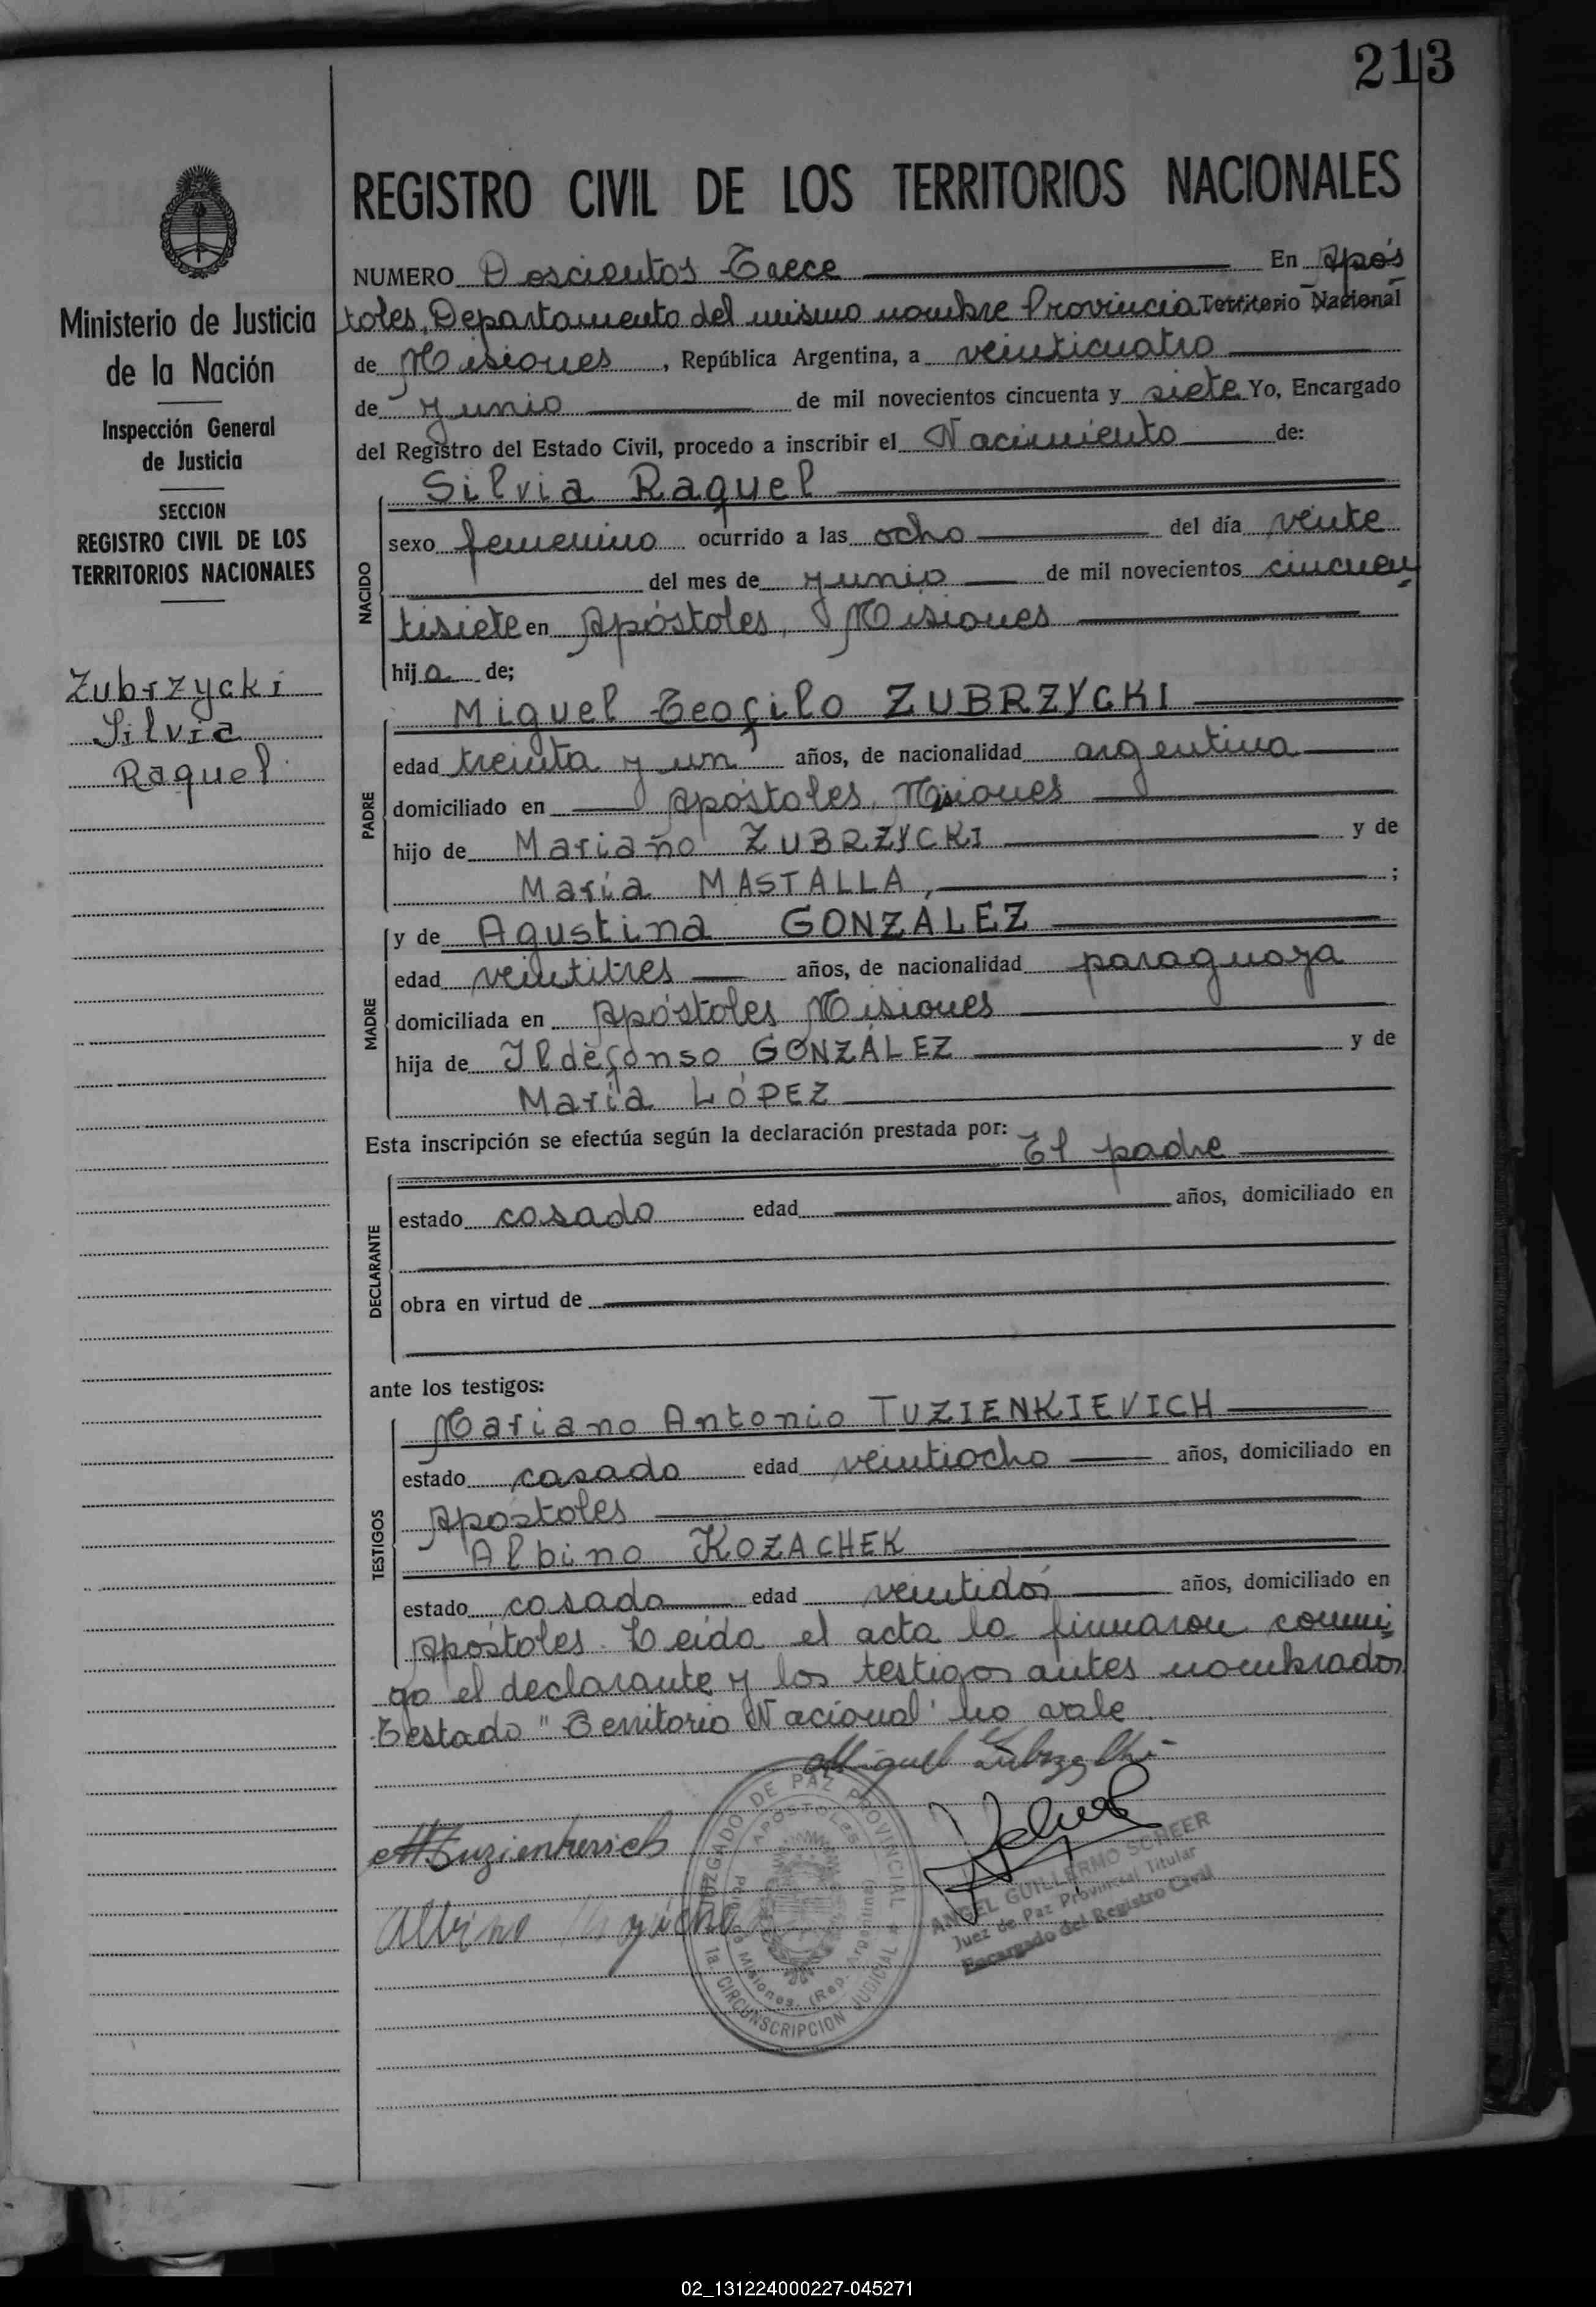 213
REGISTRO CIVIL DE LOS TERRITORIOS NACIONALES
Ministerio de Justicia
de la Nación
Inspección General
de Justicia
SECCION
REGISTRO CIVIL DE LOS
TERRITORIOS NACIONALES
Zubrzycki
Silvia
Raquel
NUMERO Doscientos Trece En Após
toles, Departamento del mismo nombre Provincia Territorio Nacional
de Misiones, República Argentina, a veinticuatro
de Junio de mil novecientos cincuenta y siete Yo, Encargado
del Registro del Estado Civil, procedo a inscribir el Nacimiento de:
NACIDO
Silvia Raquel
sexo femenino ocurrido a las ocho del día veinte
del mes de Junio de mil novecientos cincuen
tisiete en Apóstoles, Misiones
hija de;
PADRE
Miguel Teofilo ZUBRZYCKI
edad treinta y un años, de nacionalidad argentina
domiciliado en Apóstoles, Misiones
hijo de Mariano ZUBRZYCKI y de
María MASTALLA, ;
MADRE
y de Agustina GONZÁLEZ
edad veintitres años, de nacionalidad paraguaya
domiciliada en Apóstoles Misiones
hija de Ildefonso GONZÁLEZ y de
María LÓPEZ
Esta inscripción se efectúa según la declaración prestada por: El padre
DECLARANTE
estado casado edad años, domiciliado en
obra en virtud de
ante los testigos:
TESTIGOS
Mariano Antonio TUZIENKIEVICH
estado casado edad veintiocho años, domiciliado en
Apóstoles
Albino KOZACHEK
estado casado edad veintidós años, domiciliado en
Apóstoles. Leída el acta la firmaron conmi
go el declarante y los testigos antes nombrados
Testado "Territorio Nacional" no vale.
Miguel Zubrzycki
JUZGADO DE PAZ PROVINCIAL
APOSTOLES
Misiones. (Rep. Argentina)
1a CIRCUNSCRIPCION JUDICIAL
ANGEL GUILLERMO SCHEER
Juez de Paz Provincial Titular
Encargado del Registro Civil
Albino
02_131224000227-045271